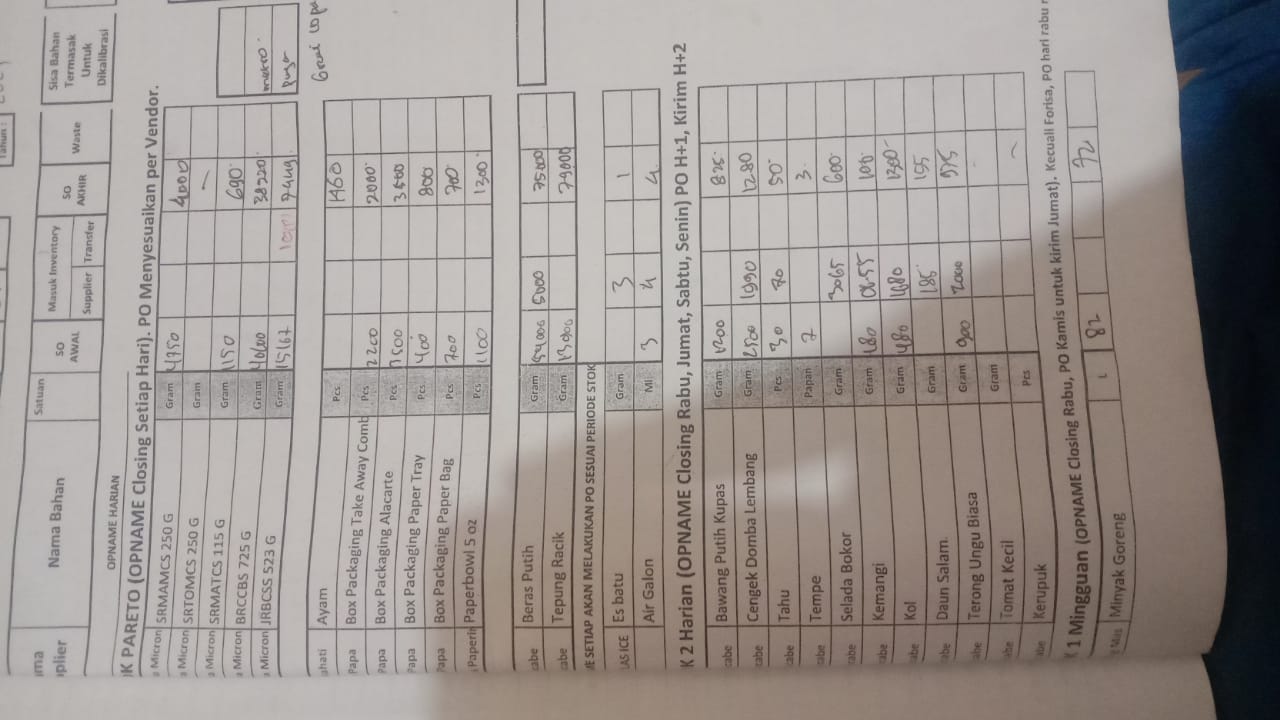 Tahun :
Nama Bahan Satuan SO AWAL Masuk Inventory SO AKHIR Waste Sisa Bahan Termasak Untuk Dikalibrasi
plier Supplier Transfer
OPNAME HARIAN
K PARETO (OPNAME Closing Setiap Hari). PO Menyesuaikan per Vendor.
Micron SRMAMCS 250 G Gram 4750 4000
Micron SRTOMCS 250 G Gram -
Micron SRMATCS 115 G Gram 1150 690
Micron BRCCBS 725 G Gram 38220
Micron JRBCSS 523 G Gram
metro
Ayam Pcs 1460
Papa Box Packaging Take Away Comb Pcs 2200 2000
Papa Box Packaging Alacarte Pcs
Papa Box Packaging Paper Tray Pcs 400 800
Papa Box Packaging Paper Bag Pcs 700 700
Paperin Paperbowl 5 oz Pcs 1100 1300
cabe Beras Putih Gram 5000 75000
cabe Tepung Racik Gram
E SETIAP AKAN MELAKUKAN PO SESUAI PERIODE STOK
AS ICE Es batu Gram 3 1
Air Galon Ml 3 4 4
K 2 Harian (OPNAME Closing Rabu, Jumat, Sabtu, Senin) PO H+1, Kirim H+2
cabe Bawang Putih Kupas Gram 1200 825
cabe Cengek Domba Lembang Gram 2500 1990 1280
cabe Tahu Pcs 30 70 50
cabe Tempe Papan 7 3
cabe Selada Bokor Gram 3065 600
cabe Kemangi Gram 180 100
cabe Kol Gram 480 1680 1300
cabe Daun Salam Gram 185 155
abe Terong Ungu Biasa Gram 900 2000 975
abe Tomat Kecil Gram
abe Kerupuk Pcs
1 Mingguan (OPNAME Closing Rabu, PO Kamis untuk kirim Jumat). Kecuali Forisa, PO hari rabu
Minyak Goreng L 82 92